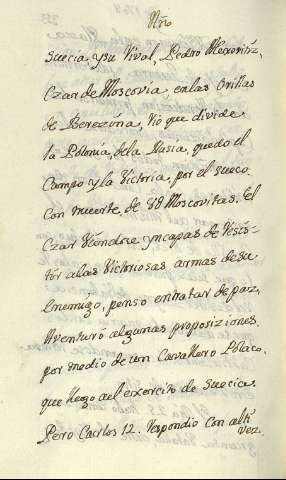 Año
Suecia, y su Rival, Pedro Alexovitz,
Czar de Moscovia, en las Orillas
de Berezina, rio que divide
la Polonia, de la Rusia, quedo el
Campo y la Victoria, por el sueco.
Con muerte, de 8U Moscovitas. El
Czar viendose yncapas de resis-
tir a las Victoriosas armas de su
enemigo, penso entratar de paz,
Aventuró algunas proposiziones
por medio de un Cavallero Polaco,
que llego al exercito de Suecia.
Pero Carlos 12. respondio con alti
vez.